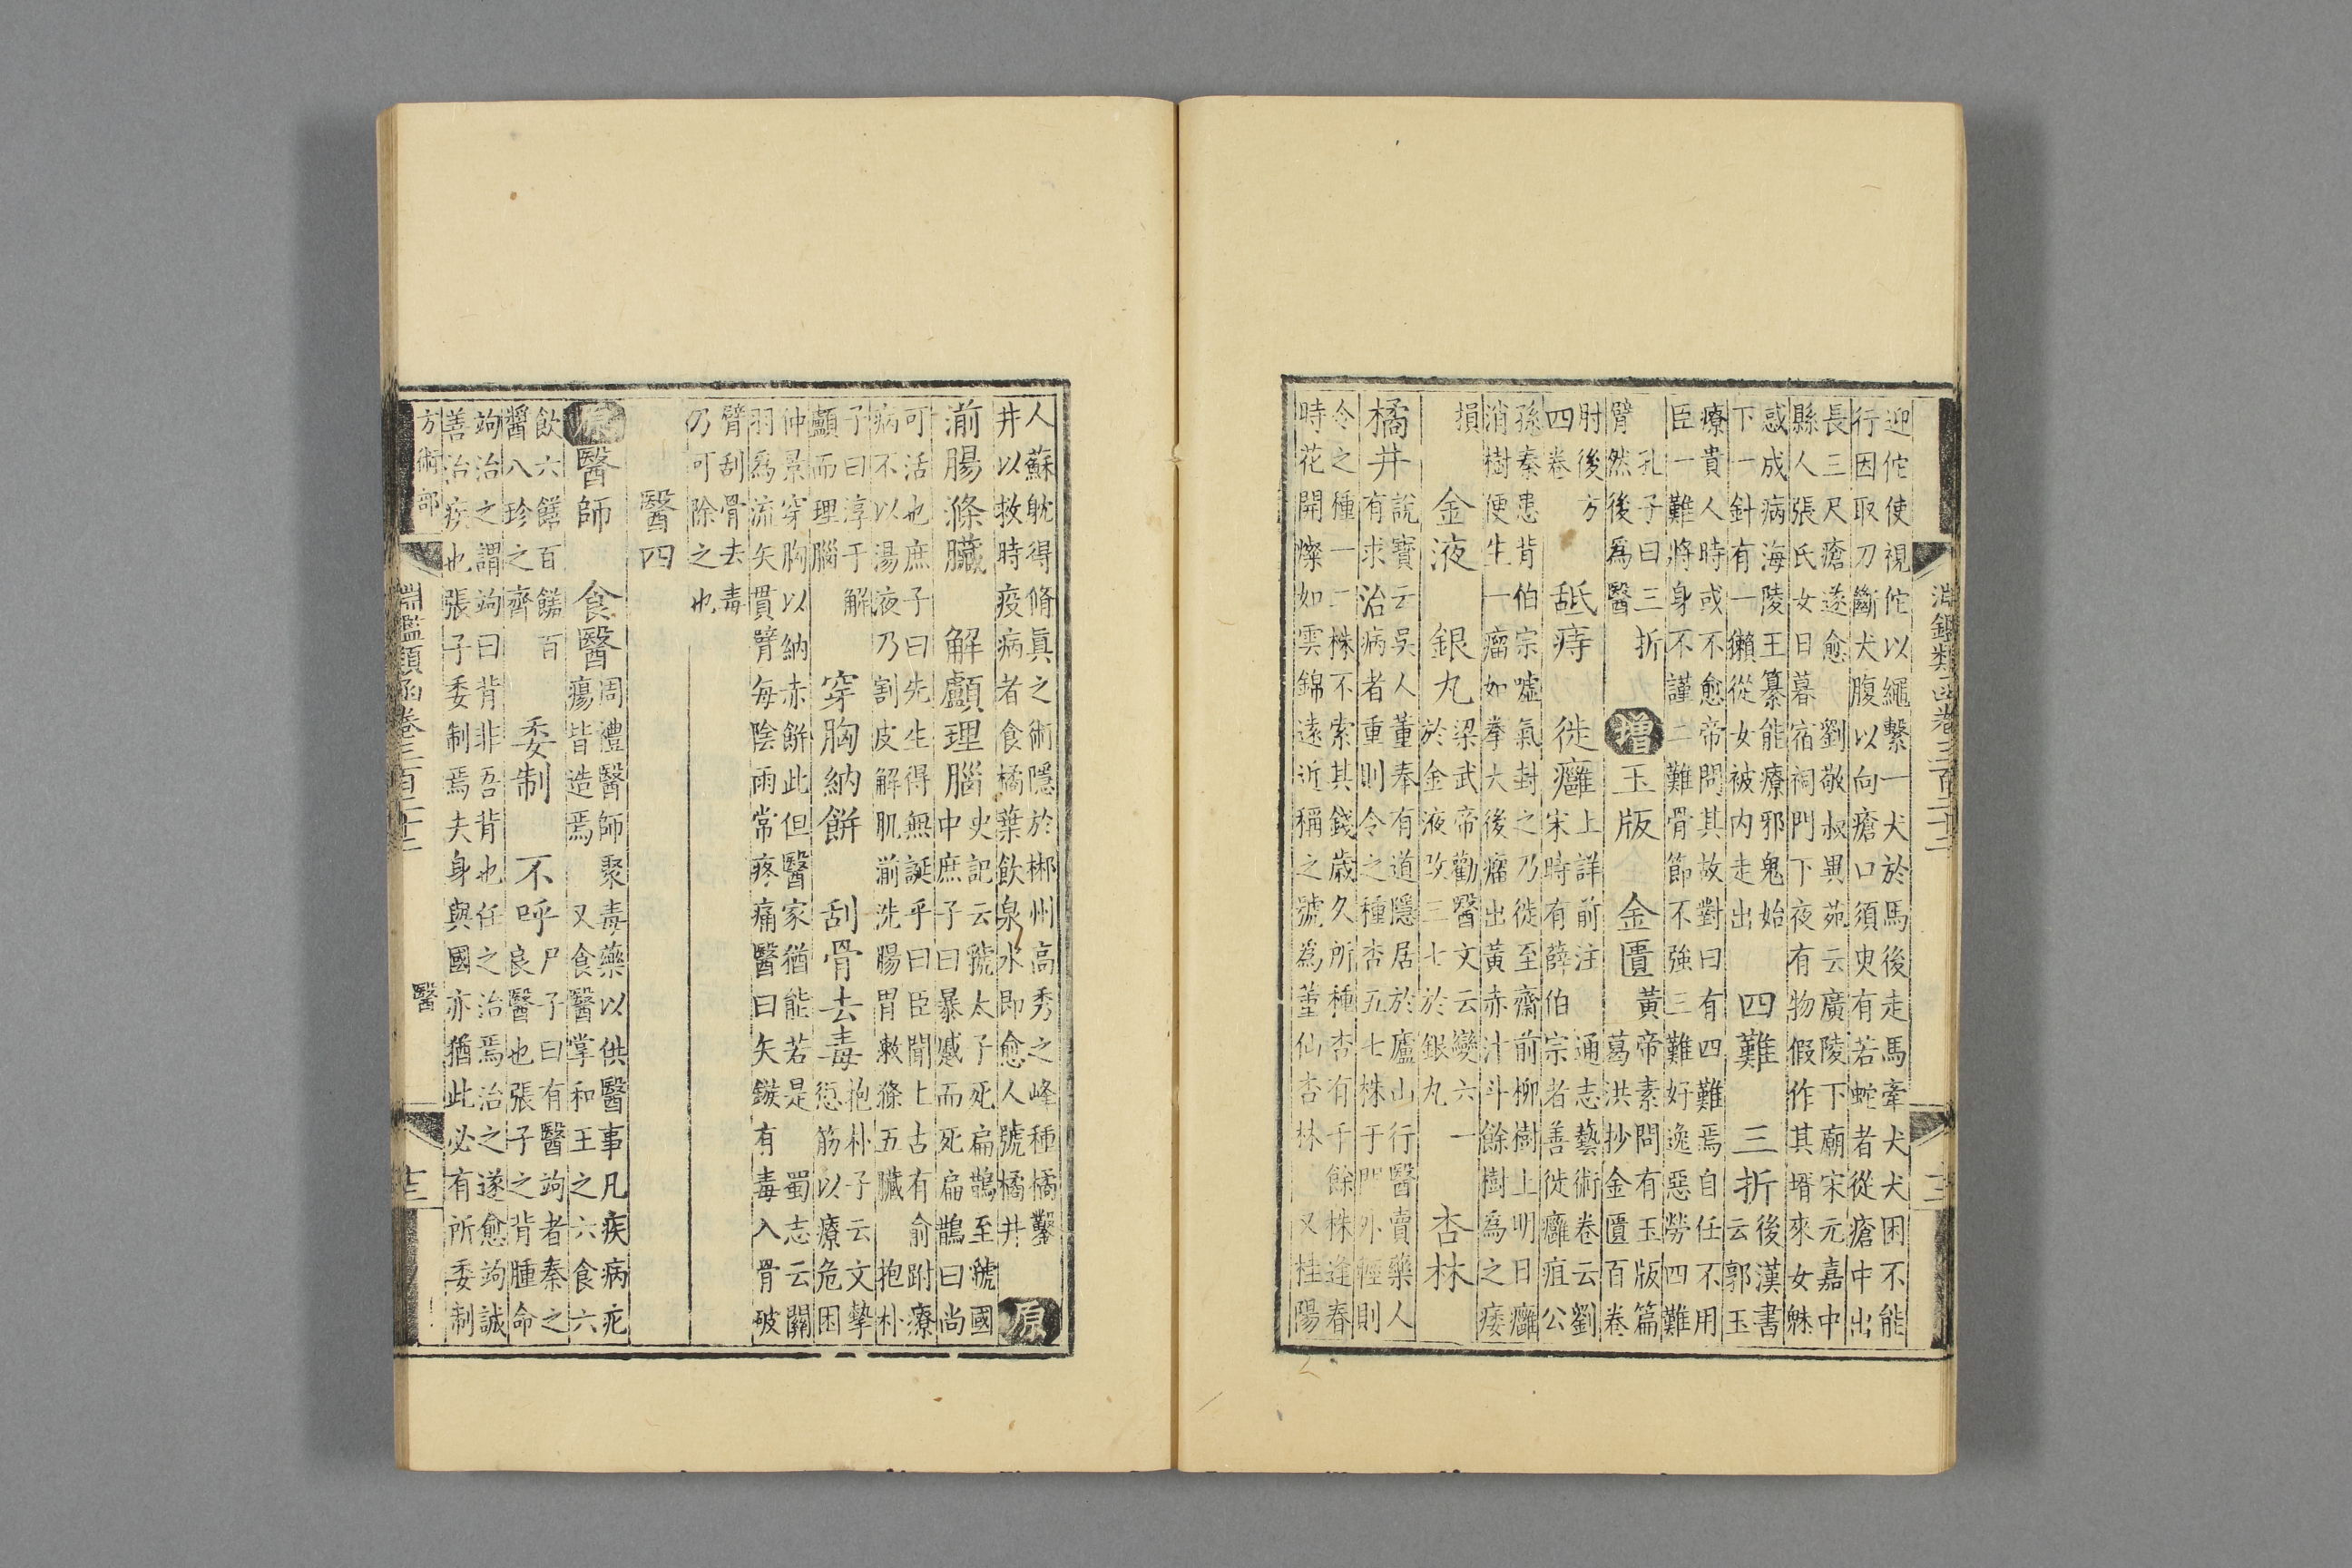 淵鑑類函卷三百二十二
迎佗使視佗以繩繫一犬於馬後走馬牽犬犬困不能
行因取刀斷犬腹以向瘡口須臾有若蛇者從瘡中出
長三尺瘡遂愈 劉敬叔異苑云廣陵下廟宋元嘉中
縣人張氏女日暮宿祠門下夜有物假作其壻來女魅
惑成病海陵王纂能療邪鬼始
下一針有一獺從女被内走出
四難 三折
後漢書
云郭玉
療貴人時或不愈帝問其故對曰有四難焉自任不用
臣一難將身不謹二難骨節不強三難好逸惡勞四難
孔子曰三折
臂然後爲醫
增玉版 金匱
黃帝素問有玉版篇
葛洪抄金匱百卷
肘後方
四卷
舐痔 徙癰
上詳前注 通志藝術卷云劉
宋時有薛伯宗者善徙癰疽公
孫泰患背伯宗噓氣封之乃徙至齋前柳樹上明日癰
消樹便生一瘤如拳大後瘤出黃赤汁斗餘樹爲之痿
損
金液 銀丸
梁武帝勸醫文云變六一
於金液改三七於銀丸
杏林
橘井
說寶云吳人董奉有道隱居於廬山行醫賣藥人
有求治病者重則令之種杏五七株于門外輕則
令之種一二株不索其錢歲久所種杏有千餘株逢春
時花開燦如雲錦遠近稱之號爲董仙杏林 又桂陽
人蘇耽得脩真之術隱於郴州高秀之峰種橘鑿
井以救時疫病者食橘葉飲泉水即愈人號橘井
原
湔腸滌臟 解顱理腦
史記云虢太子死扁鵲至虢國
中庶子曰暴蹷而死扁鵲曰尚
可活也庶子曰先生得無誕乎曰臣聞上古有俞跗療
病不以湯液乃割皮解肌湔洗腸胃漱滌五臟 抱朴
子曰淳于解
顱而理腦
穿胸納餅 刮骨去毒
抱朴子云文摯
愆筋以療危困
仲景穿胸以納赤餅此但醫家猶能若是 蜀志云關
羽爲流矢貫臂每陰雨常疼痛醫曰矢鏃有毒入骨破
臂刮骨去毒
乃可除之也
醫四
原醫師 食醫
周禮醫師聚毒藥以供醫事凡疾病疕
瘍皆造焉 又食醫掌和王之六食六
飲六饍百饈百
醬八珍之齊
委制 不呼
尸子曰有醫竘者秦之
良醫也張子之背腫命
竘治之謂竘曰背非吾背也任之治焉治之遂愈竘誠
善治疾也張子委制焉夫身與國亦猶此必有所委制
方術部 醫
淵鑑類函卷三百二十二 十三